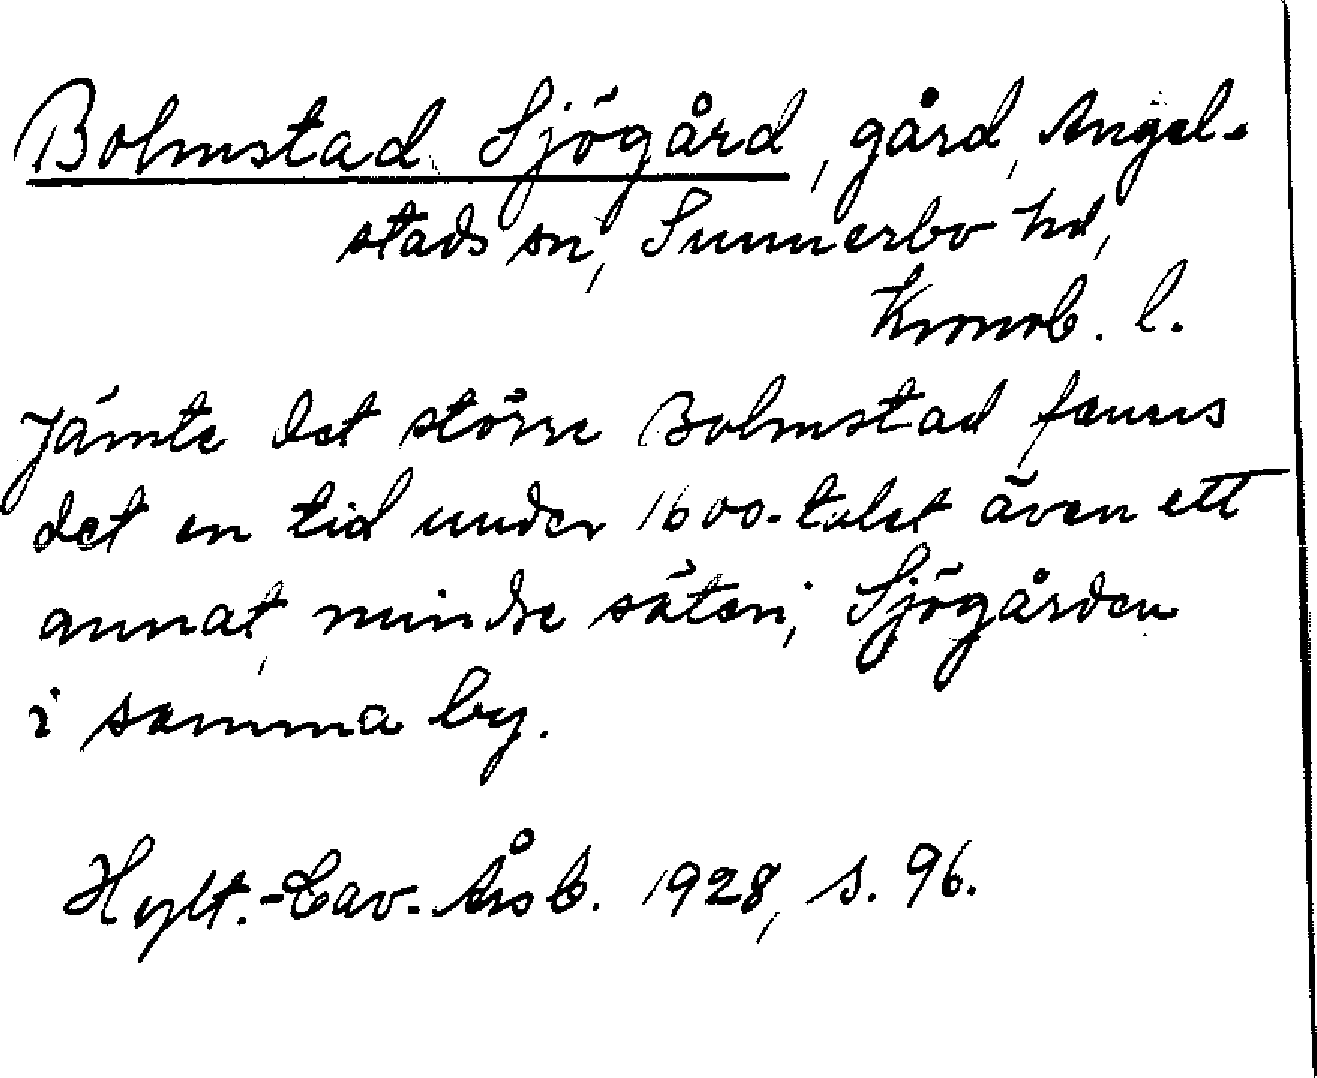 Bolmstad Sjögård, gård, Angel-
stads sn, Sunnerbo hd,
Kronob. l.
Jämte det större Bolmstad fanns
det en tid under 1600-talet även ett
annat, mindre säteri, Sjögården
i samma by.
Hylt.-Cav. Årsb. 1928, s. 96.